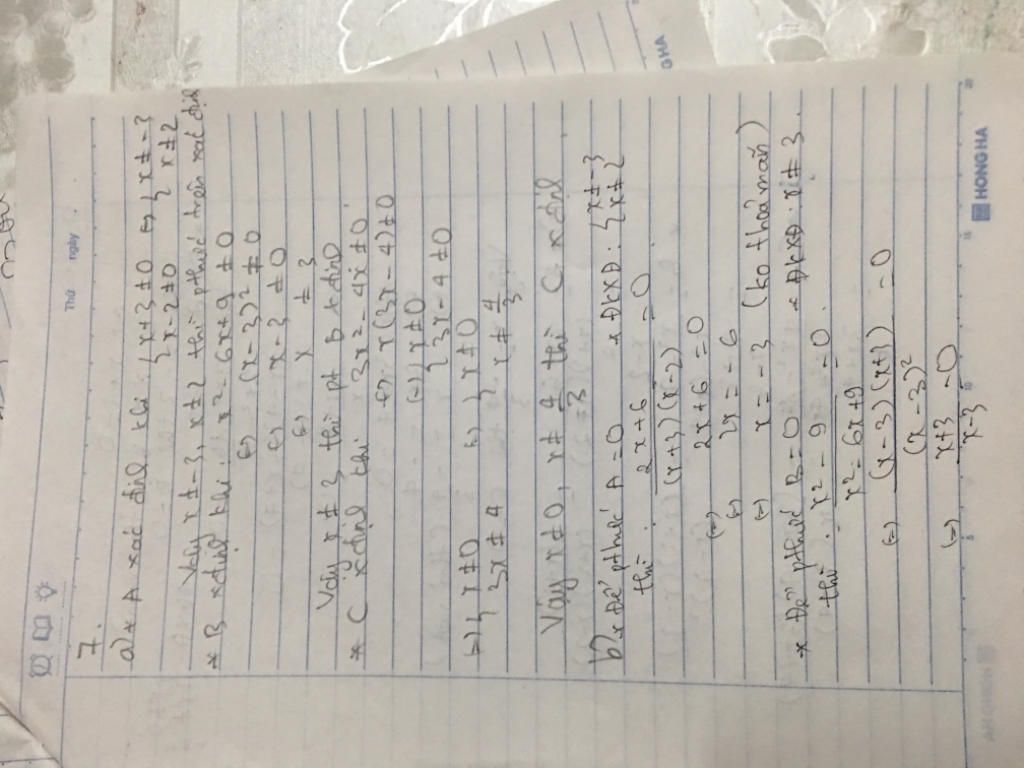 Thứ
ngày
7.
a) * A xác định khi {x+3≠0 ⇔ {x≠-3
{x-2≠0 {x≠2
Vậy x≠-3, x≠2 thì phthức trên xác định
* B xđịnh khi x² - 6x+9 ≠0
⇔ (x-3)² ≠0
⇔ x-3 ≠0
⇔ x ≠ 3
Vậy x≠3 thì pt B xđịnh
* C xđịnh thì 3x² - 4x ≠0
⇔ x(3x-4)≠0
⇔ {x≠0
{3x-4≠0
⇔ {x≠0 ⇔ {x≠0
{3x≠4 {x≠4/3
Vậy x≠0, x≠4/3 thì C xđịnh.
b) * Để pthức A=0 * ĐKXĐ: {x≠-3
{x≠2
thì. (2x+6)/((x+3)(x-2)) =0
⇔ 2x+6=0
⇔ 2x = -6
⇔ x = -3 (ko thoả mãn)
* Để pthức B=0 * ĐKXĐ: x≠3.
thì. (x²-9)/(x²-6x+9) =0.
⇔ ((x-3)(x+1))/((x-3)²) =0
⇔ (x+3)/(x-3) =0
HONG HA
GHA